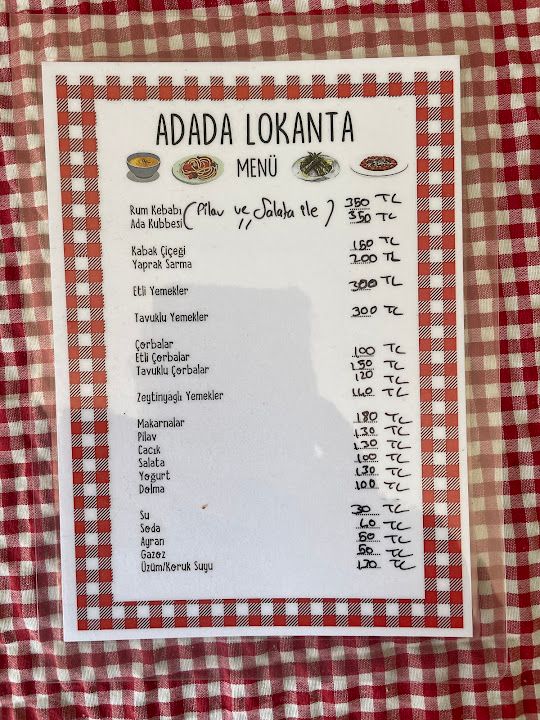 ADADA LOKANTA
MENÜ
Rum Kebabı (Pilav ve Salata ile) 350 TL
Ada Kubbesi " 350 TL
Kabak Çiçeği 150 TL
Yaprak Sarma 200 TL
Etli Yemekler 300 TL
Tavuklu Yemekler 300 TL
Çorbalar 100 TL
Etli Çorbalar 150 TL
Tavuklu Çorbalar 120 TL
Zeytinyağlı Yemekler 140 TL
Makarnalar 180 TL
Pilav 130 TL
Cacık 130 TL
Salata 100 TL
Yoğurt 130 TL
Dolma 100 TL
Su 30 TL
Soda 40 TL
Ayran 50 TL
Gazoz 50 TL
Üzüm/Koruk Suyu TL